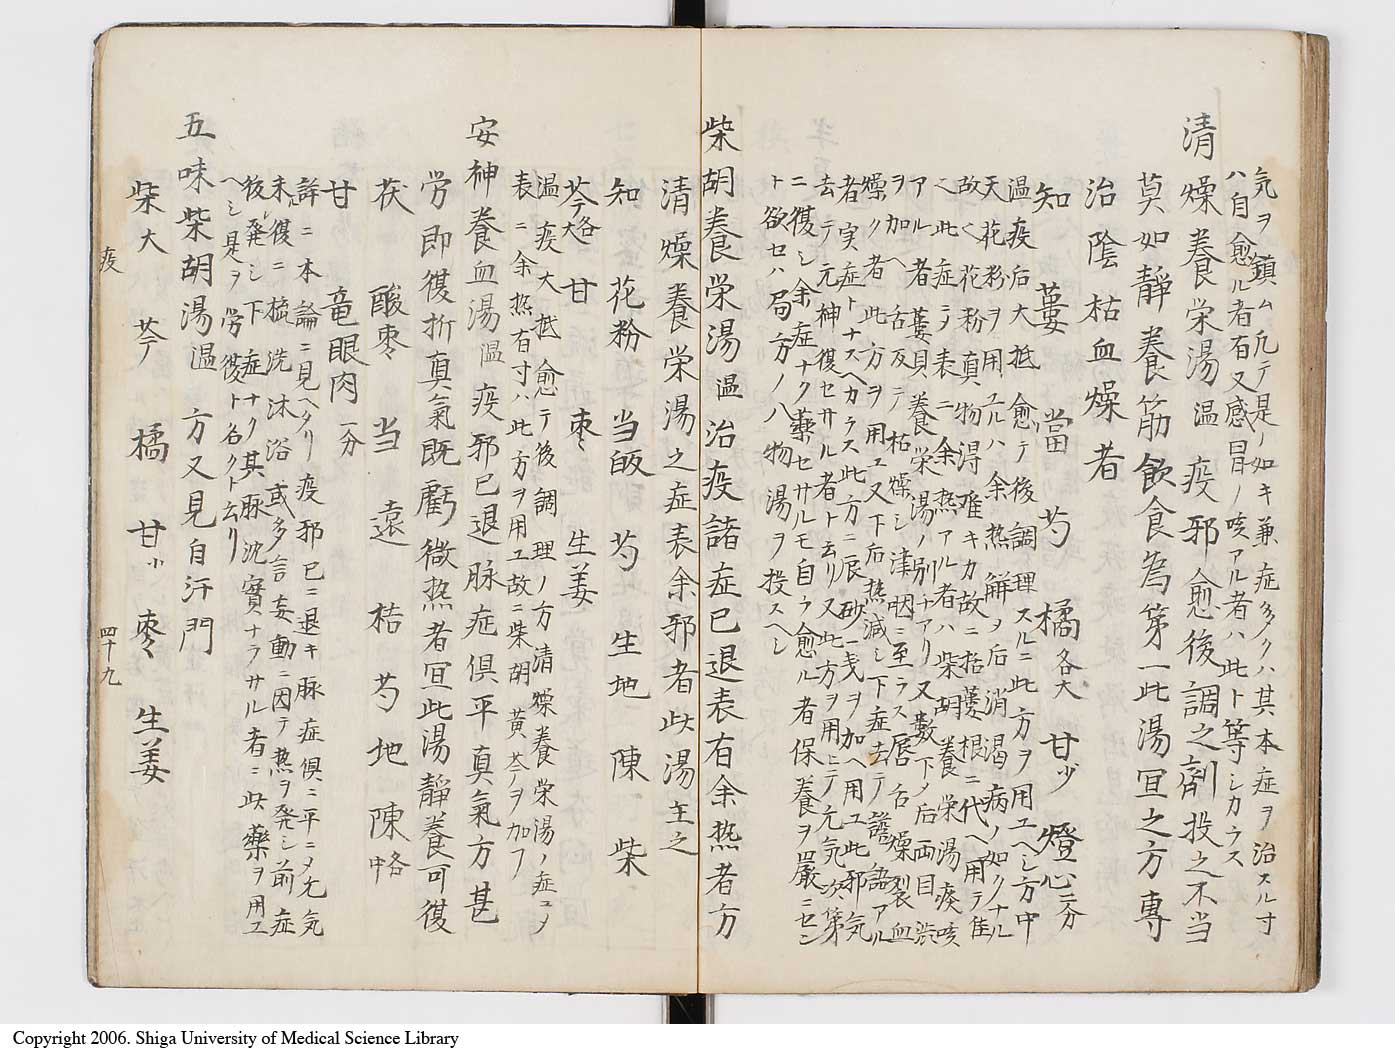 気ヲ鎮ム凡テ是ノ如キ兼症多クハ其本症ヲ治スル寸
ハ自愈ル者有又感冒ノ咳アル者ハ此ト等シカラス
清燥養栄湯温 疫邪愈後調之剤投之不当
莫如靜養節飲食為第一此湯宜之方專
治陰枯血燥者
知 蔞 當 芍 橘各大 甘少 燈心二分
温疫后大抵愈テ後調理スルニ此方ヲ用ユヘシ方中
天花粉ヲ用ユルハ余熱解ヲ后消渇病ノ如クナル
故ヘ花粉真物得難キカ故ニ括蔞根ニ代ヘ用テ佳
ヘ此症ニテ表ニ余熱アル者ハ柴胡養栄湯痰咳
アル者ハ蔞貝養栄湯ノ別チアリ又數下ノ后両目渋
ヲ加ヘ舌反テ枯燥シ津咽ニ至ラス唇舌燥裂血
燥ク者此方ヲ用ユ又下后熱減シ下症去テ譫語アル
者実症トナスヘカラス此方ニ辰砂一戋ヲ加ヘ用ユ此邪気
去テ元神復セサル者ト云リ又此方ヲ用ヒテ元気次第
ニ復シ余症ナク藥セサルモ自ラ愈ル者保養ヲ嚴ニセン
ト欲セハ局方ノ八物湯ヲ投スヘシ
柴胡養栄湯温 治疫諸症已退表有余熱者方
清燥養栄湯之症表余邪者此湯主之
知 花粉 当皈 芍 生地 陳 柴
芩各大 甘 棗 生姜
温疫大抵愈テ後調理ノ方清燥養栄湯ノ症ニメ
表ニ余熱有寸ハ此方ヲ用ユ故ニ柴胡黄芩ヲ加フ
安神養血湯温 疫邪已退脉症倶平真氣方甚
労即復折真氣既虧微熱者宜此湯靜養可復
茯 酸棗 当 遠 桔 芍 地 陳各中
甘 竜眼肉一分
詳ニ本論ニ見ヘタリ疫邪已ニ退キ脉症倶ニ平ニメ元気
未復ニ梳洗沐浴或多言妄動ニ因テ熱ヲ発シ前症
復発シ下症ナク其脉沈實ナラサル者ニ此藥ヲ用ユ
ヘシ是ヲ労復ト名クト云リ
五味柴胡湯温 方又見自汗門
柴大 芩 橘 甘少 棗 生姜
疫 四十九
Copyright 2006. Shiga University of Medical Science Library